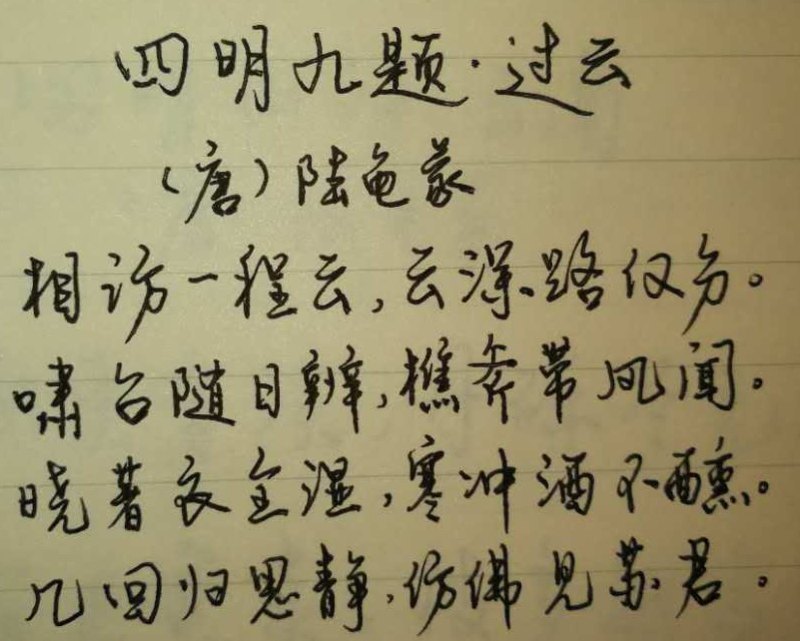 四明九题·过云
（唐）陆龟蒙
相访一程云，云深路仅分。
啸台随日辨，樵斧带风闻。
晓著衣全湿，寒冲酒不醺。
几回归思静，仿佛见苏君。